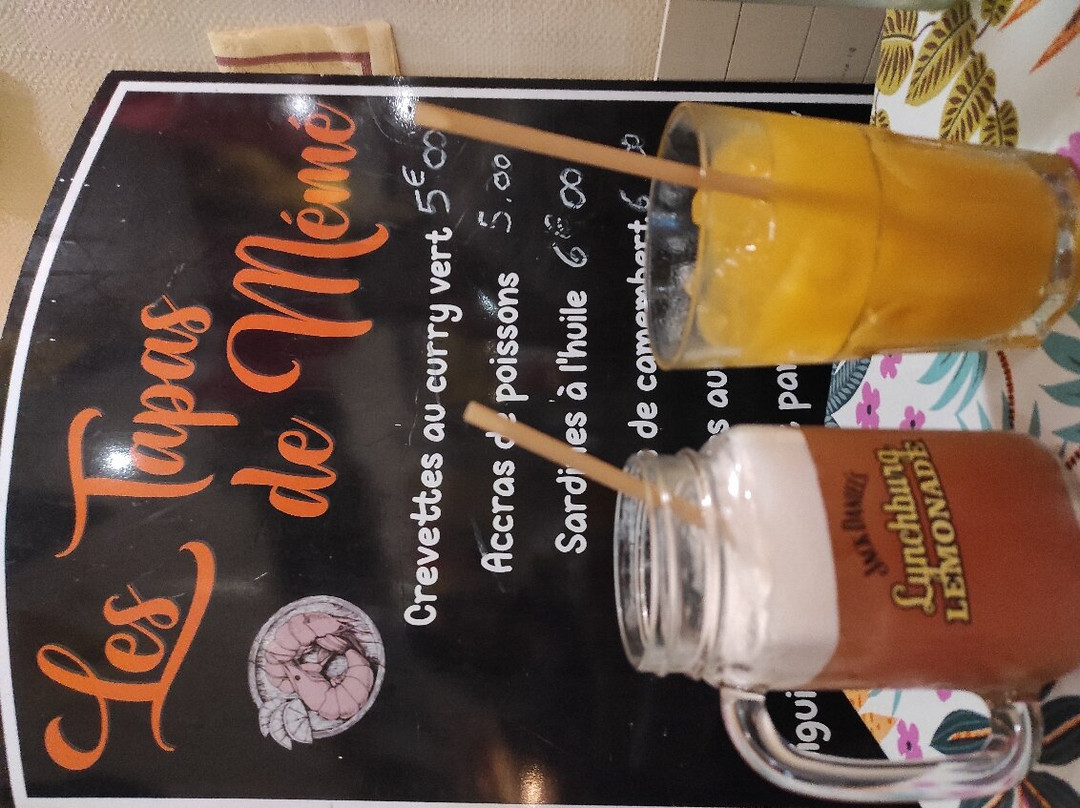 Les Tapas
de Mémé
Crevettes au curry vert 5€00
Accras de poissons 5.00
Sardines à l'huile 6€00
de camembert 6
s au
JACK DANIEL'S
Lynchburg
LEMONADE